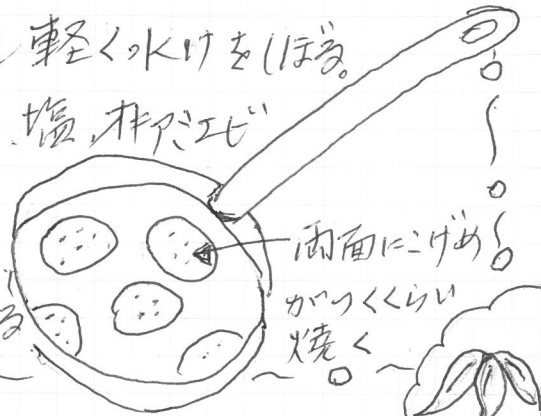 軽く水けをしぼる。
塩、オキアミエビ
両面にこげめ
がつくくらい
焼く
る